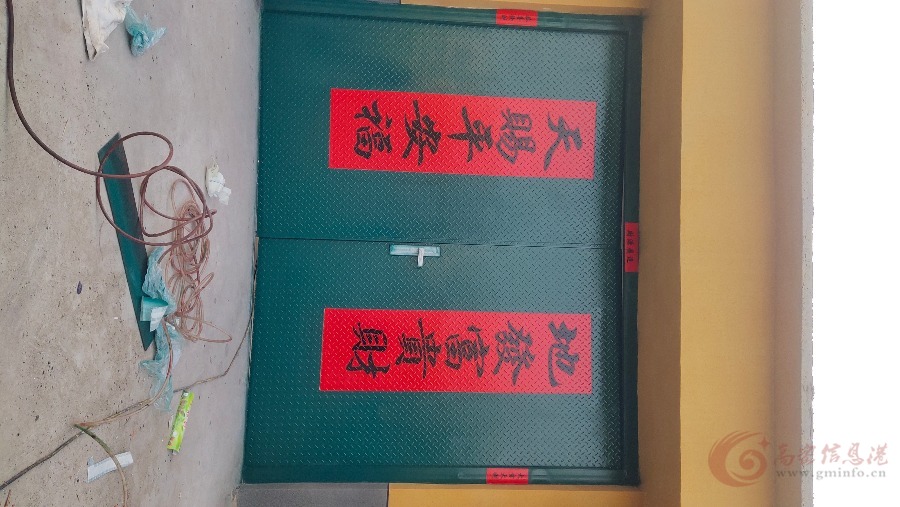 天賜平安福
地發富貴財
高密信息港
www.gminfo.cn